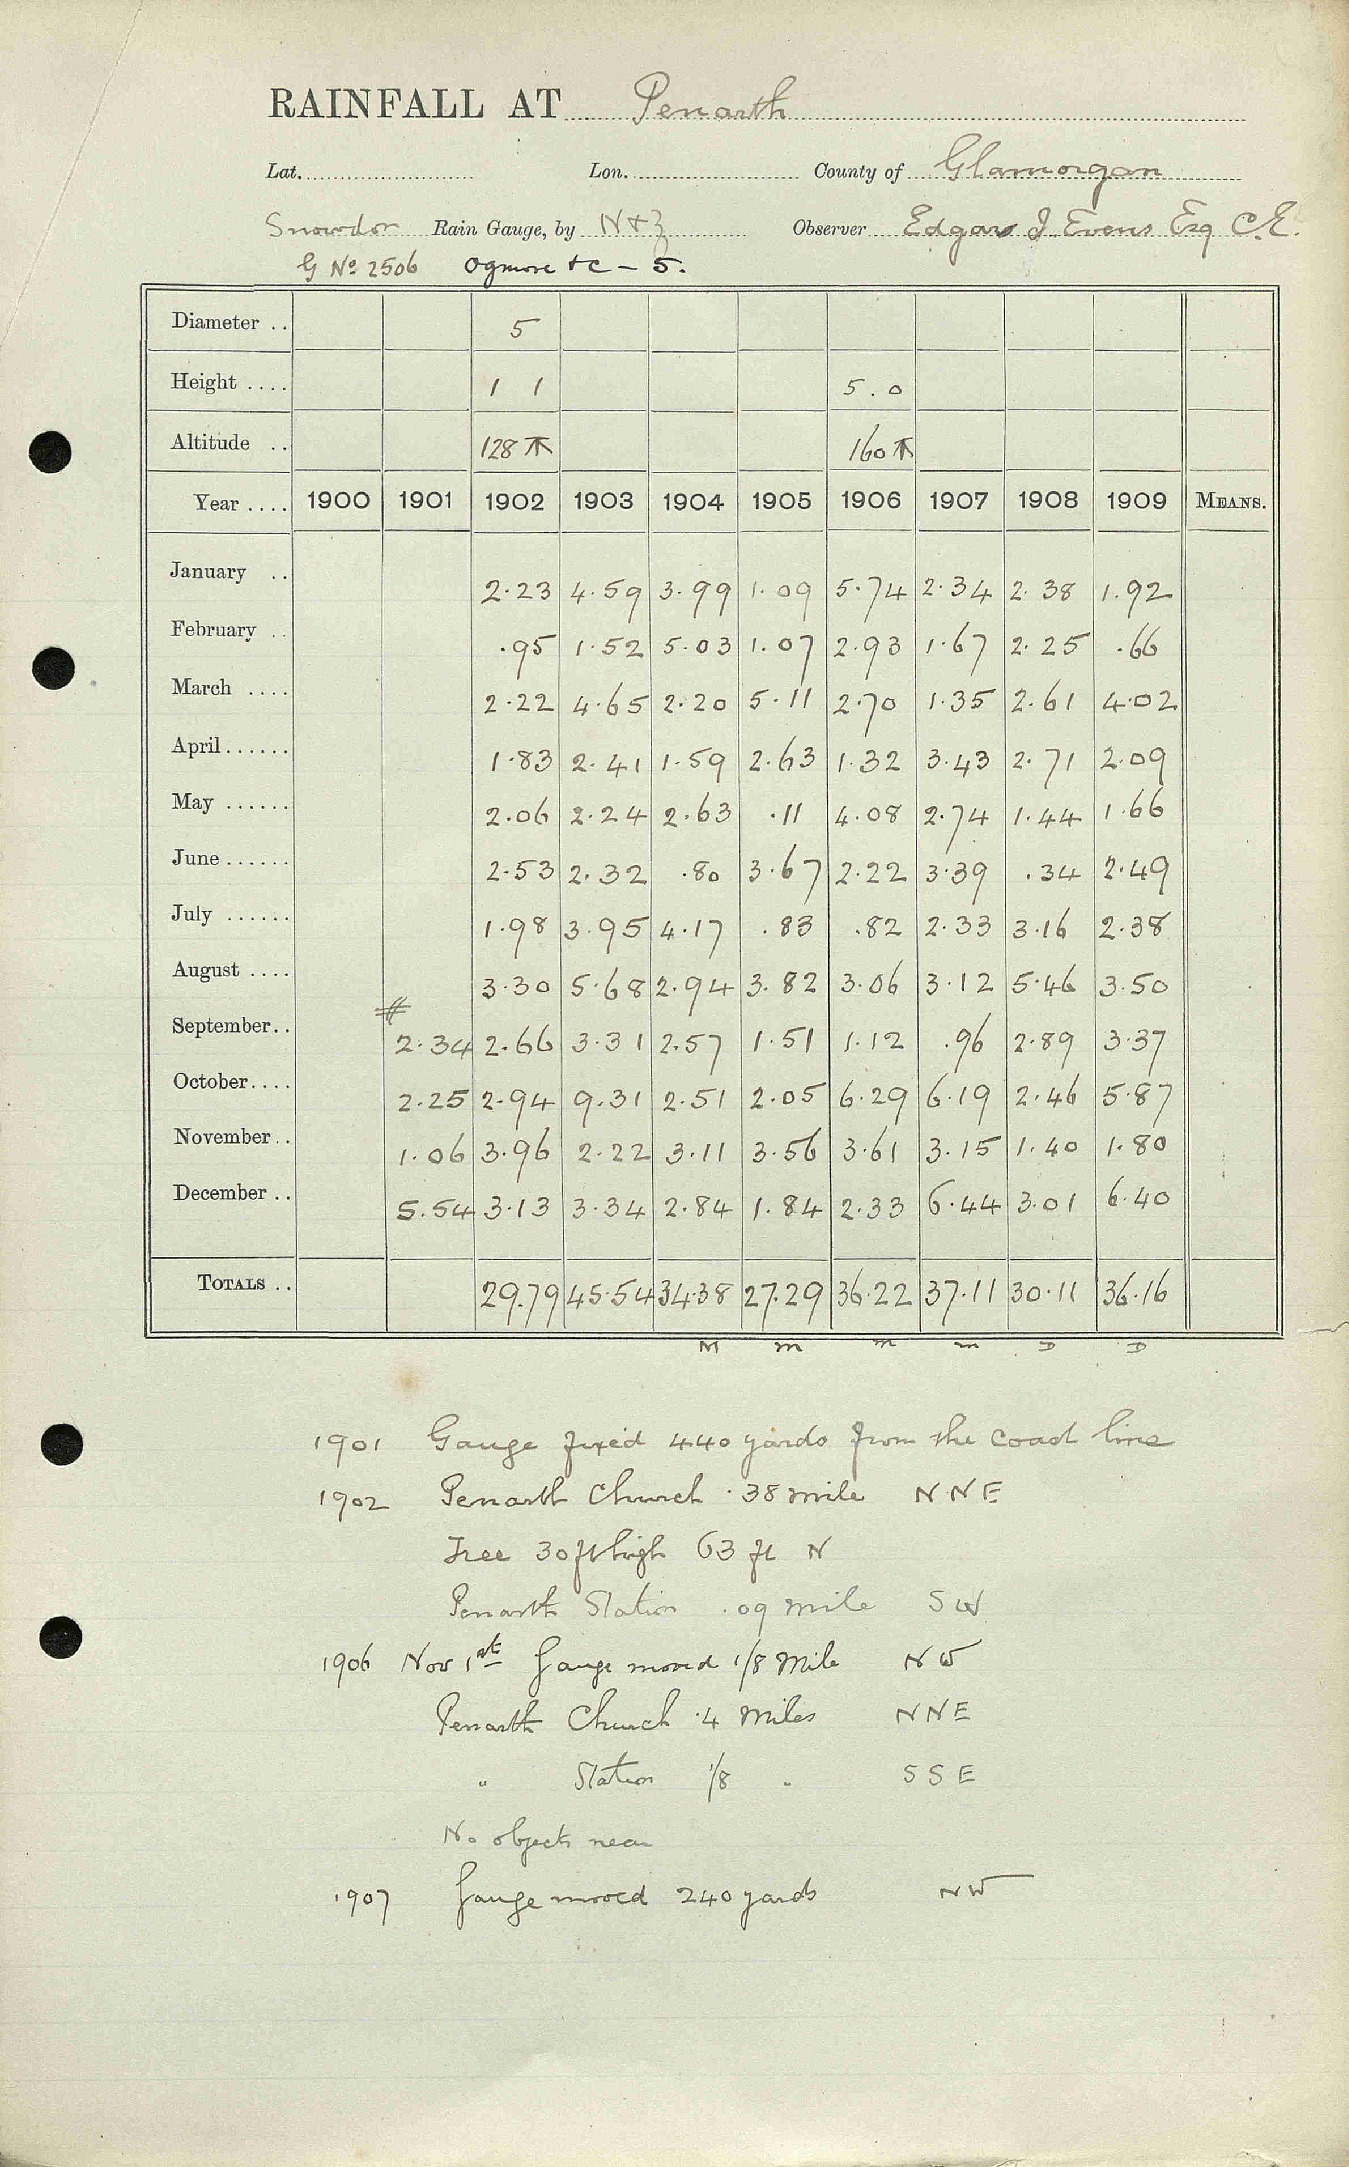 RAINFALL AT Penarth
Lat. Lon. County of Glamorgan
Snowdon Rain Gauge, by N & Z Observer Edgar J. Evens Esq C.E.
G No 2506 Ogmore &c - 5.
Diameter .. 5
Height .... 1 1 5.0
Altitude .. 128 160
Year .... 1900 1901 1902 1903 1904 1905 1906 1907 1908 1909 MEANS.
January .. 2.23 4.59 3.99 1.09 5.74 2.34 2.38 1.92
February .. .95 1.52 5.03 1.07 2.93 1.67 2.25 .66
March .... 2.22 4.65 2.20 5.11 2.70 1.35 2.61 4.02
April ...... 1.83 2.41 1.59 2.63 1.32 3.43 2.71 2.09
May ...... 2.06 2.24 2.63 .11 4.08 2.74 1.44 1.66
June ...... 2.53 2.32 .80 3.67 2.22 3.39 .34 2.49
July ...... 1.98 3.95 4.17 .83 .82 2.33 3.16 2.38
August .... 3.30 5.68 2.94 3.82 3.06 3.12 5.46 3.50
September .. # 2.34 2.66 3.31 2.57 1.51 1.12 .96 2.89 3.37
October .... 2.25 2.94 9.31 2.51 2.05 6.29 6.19 2.46 5.87
November .. 1.06 3.96 2.22 3.11 3.56 3.61 3.15 1.40 1.80
December .. 5.54 3.13 3.34 2.84 1.84 2.33 6.44 3.01 6.40
TOTALS .. 29.79 45.54 34.38 27.29 36.22 37.11 30.11 36.16
M m m m D D
1901 Gauge fixed 440 yards from the coast line
1902 Penarth Church .38 mile NNE
Tree 30 ft high 63 ft N
Penarth Station .09 mile SW
1906 Nov 1st Gauge moved 1/8 Mile NW
Penarth Church .4 Miles NNE
" Station 1/8 " SSE
No objects near
1907 Gauge moved 240 yards NW